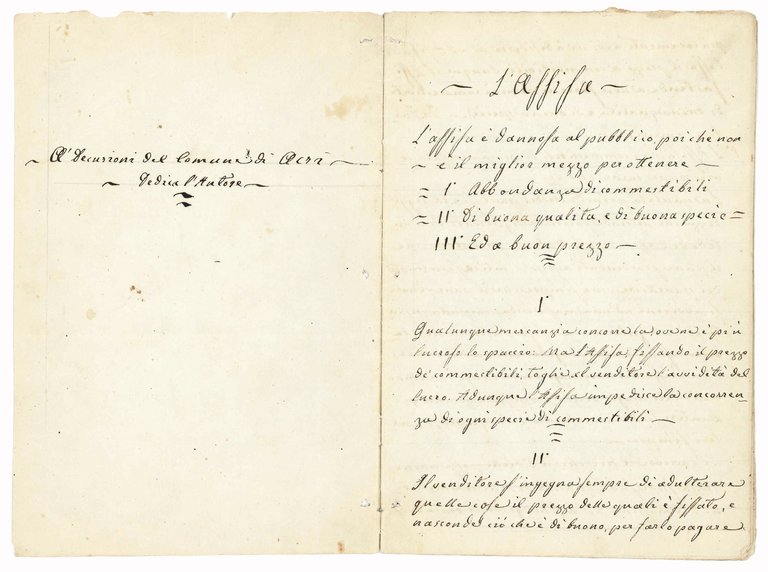 A' Decurioni del Comune di Acri
Dedica l'Autore
L'Assisa
L'assisa è dannosa al pubblico, poichè non
è il miglior mezzo per ottenere
I° Abbondanza di commestibili
II° Di buona qualità, e di buona specie
III° Ed a buon prezzo
I°
Qualunque mercanzia concorre la ov'ene è più
lucroso lo spaccio: Ma l'Assisa, fissando il prezzo
de' commestibili, toglie al venditore l'avvidità del
lucro. Adunque l'Assisa impedisce la concorren-
za di ogni specie di commestibili
II°
Il venditore s'ingegna sempre di adulterare
quelle cose il prezzo delle quali è fissato, e
nasconde ciò che è di buono, per farlo pagare